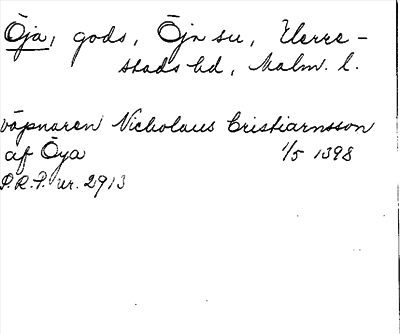 Öja, gods, Öja su, Herre-
stads hd, Malm. l.
väpnaren Nicholaus Cristiarnsson
af Öya 1/5 1398
P.R.P. nr. 2913